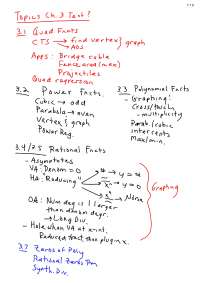 Topics Ch. 3 Test!
3.1 Quad Fncts
CTS → find vertex } graph
→ AOS
Apps: Bridge cable
Fence area (max)
Projectiles
Quad regression
3.2 Power Fncts.
Cubic → odd
Parabola → even
Vertex } graph
Power Reg.
3.3 Polynomial Fncts
- Graphing!
Cross/touch
- multiplicity
Parab./cubic
intercepts
Max/min.
3.4/3.5 Rational Fncts
- Asymptotes
VA: Denom = 0
HA: "Reducing"
→ y = #
→ y = 0
→ None
OA: Num deg is 1 larger
than denom degr.
→ Long Div.
- Hole when VA at x int.
Reduced fract then plug in x.
Graphing
3.7 Zeros of Poly
Rational Zeros Thm
Synth. Div.